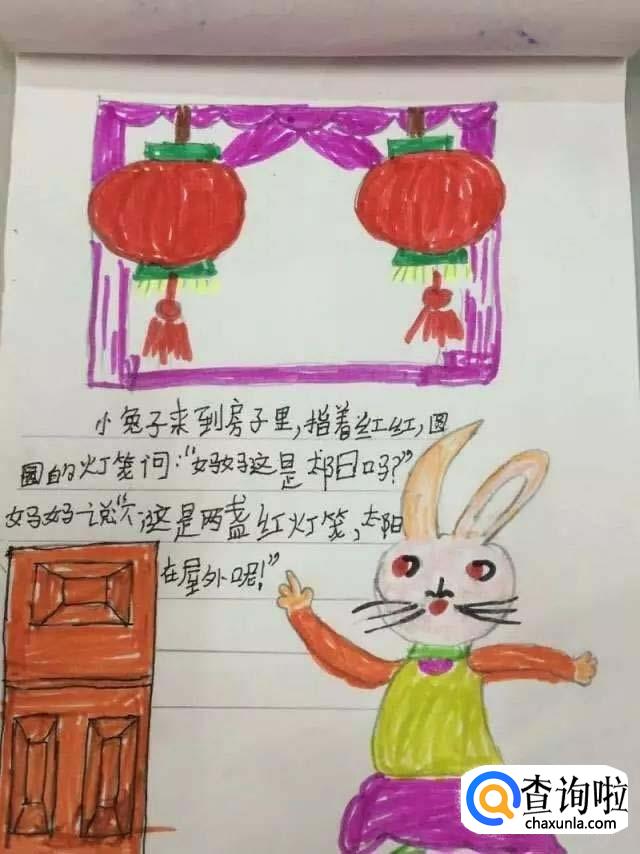 小兔子来到房子里,指着红红,圆
圆的灯笼问:“妈妈这是太阳吗?”
妈妈说“不这是两盏红灯笼,太阳
在屋外呢!”
查询啦
chaxunla.com